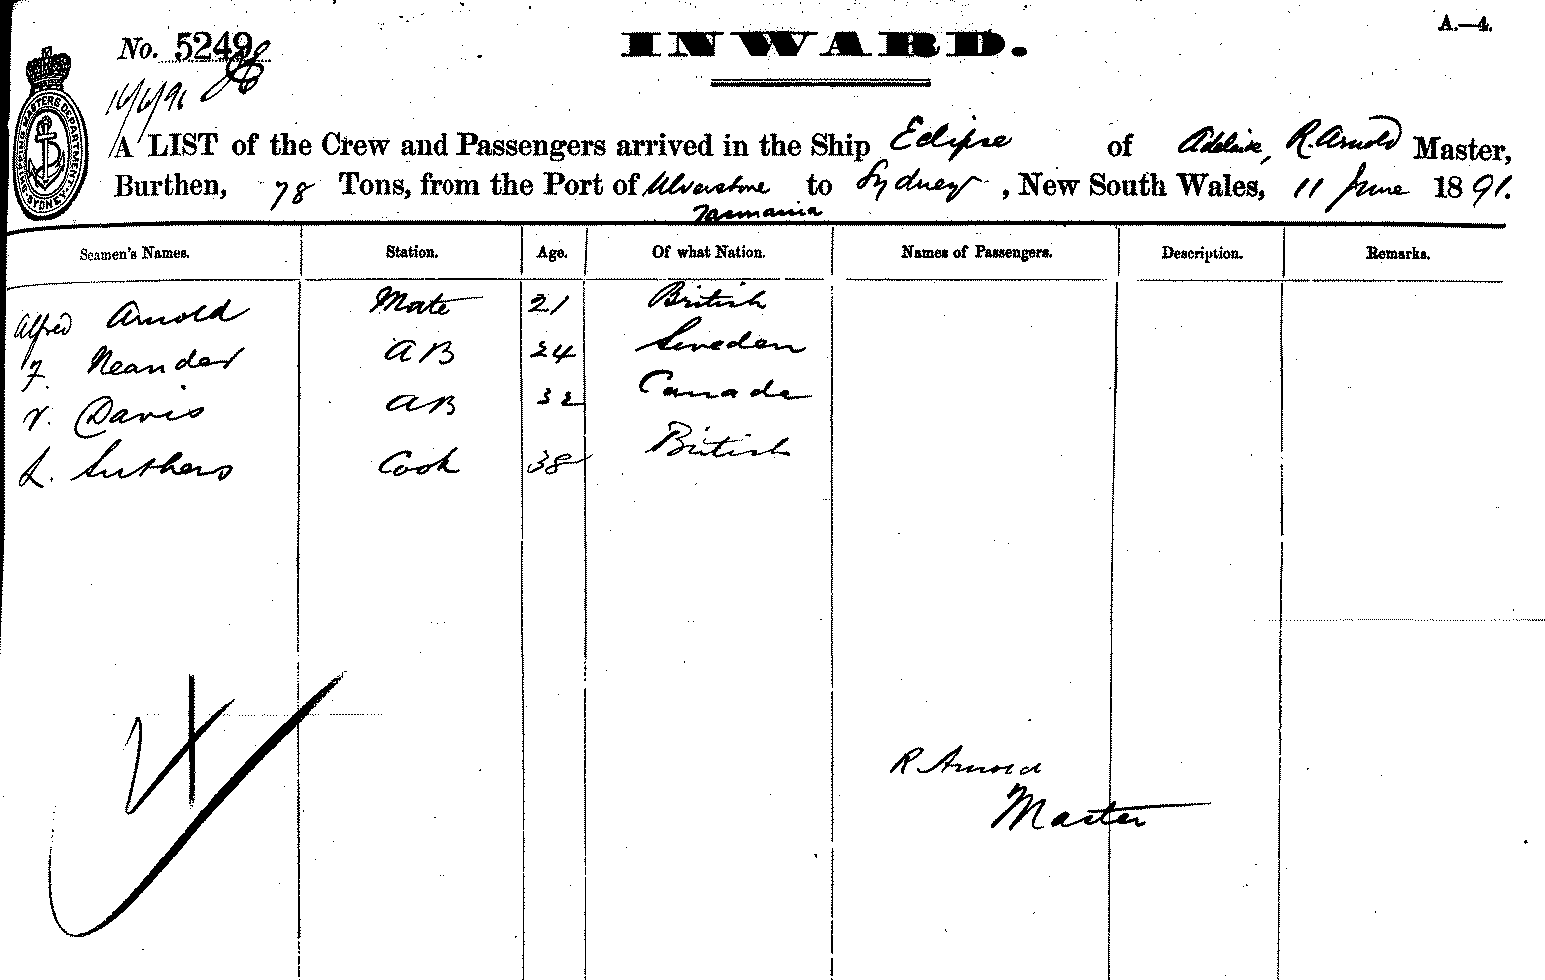 A.—4.
No. 5249
INWARD.
16/6/91
SHIPPING MASTERS DEPARTMENT SYDNEY
A LIST of the Crew and Passengers arrived in the Ship Eclipse of Adelaide, R. Arnold Master,
Burthen, 78 Tons, from the Port of Ulverstone to Sydney, New South Wales, 11 June 1891.
Tasmania
Seamen's Names. Station. Age. Of what Nation. Names of Passengers. Description. Remarks.
Alfred Arnold Mate 21 British
F. Neander AB 24 Sweden
V. Davis AB 32 Canada
L. Suthers Cook 38 British
4
R Arnold
Master